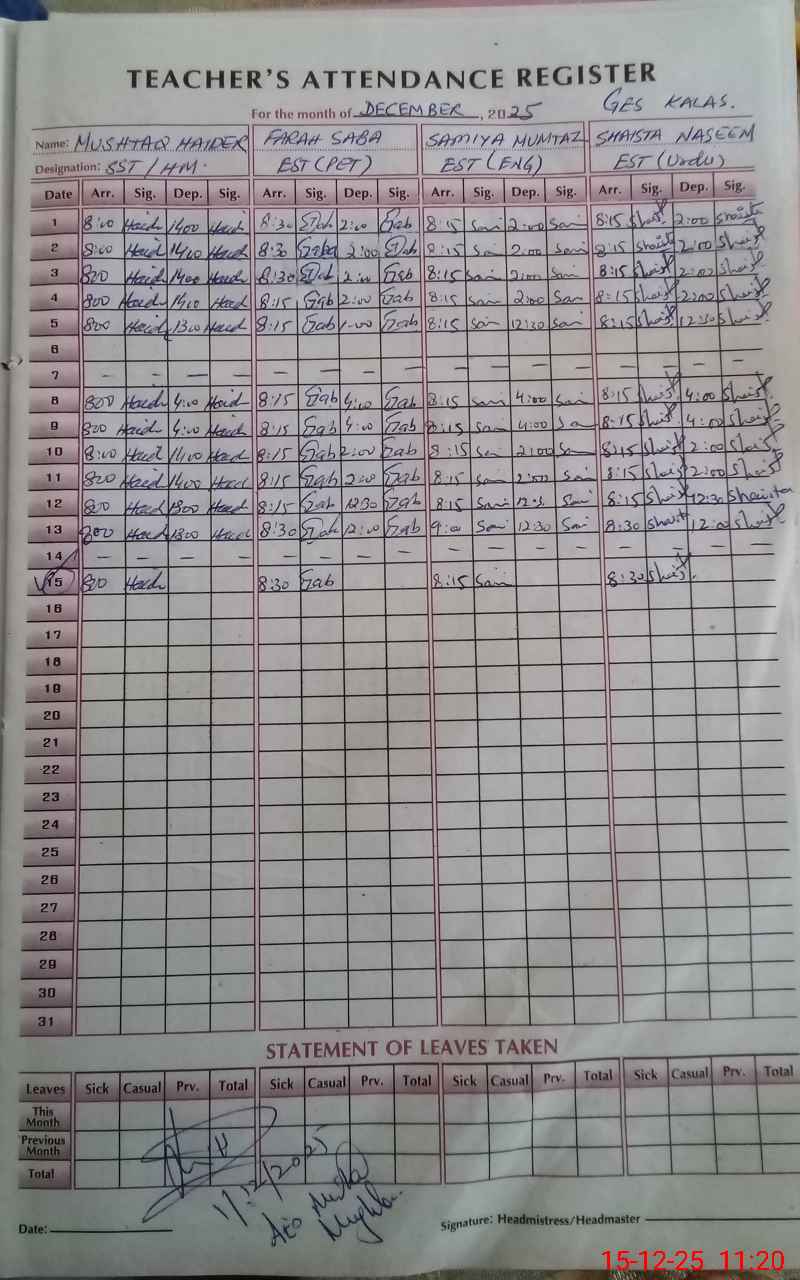 TEACHER'S ATTENDANCE REGISTER
For the month of DECEMBER, 2025 GES KALAS.
Name: MUSHTAQ HAIDER FARAH SABA SAMIYA MUMTAZ SHAISTA NASEEM
Designation: SST / HM. EST (PET) EST (ENG) EST (Urdu)
Date Arr. Sig. Dep. Sig. Arr. Sig. Dep. Sig. Arr. Sig. Dep. Sig. Arr. Sig. Dep. Sig.
1 8:00 Haid 1400 Haid 8:30 2:00 8:15 Sam 2:00 Sam 8:15 Shaist 2:00 Shaista
2 8:00 Haid 1400 Haid 8:30 2:00 8:15 Sam 2:00 Sam 8:15 Shaist 2:00 Shaist
3 800 Haid 1400 Haid 8:30 2:00 8:15 Sam 2:00 Sam 8:15 Shaist 2:00 Shaist
4 800 Haid 1400 Haid 8:15 2:00 8:15 Sam 2:00 Sam 8:15 Shaist 2:00 Shaist
5 800 Haid 1300 Haid 8:15 1:00 8:15 Sam 12:30 Sam 8:15 Shaist 12:30 Shaist
6
7 – – – – – – – – – – – – – – – –
8 800 Haid 4:00 Haid 8:15 4:00 8:15 Sam 4:00 Sam 8:15 Shaist 4:00 Shaist
9 800 Haid 4:00 Haid 8:15 4:00 8:15 Sam 4:00 Sam 8:15 Shaist 4:00 Shaist
10 8:00 Haid 1400 Haid 8:15 2:00 8:15 Sam 2:00 Sam 8:15 Shaist 2:00 Shaist
11 800 Haid 1400 Haid 8:15 2:00 8:15 Sam 2:00 Sam 8:15 Shaist 2:00 Shaist
12 800 Haid 1300 Haid 8:15 12:30 8:15 Sam Sam 8:15 Shaist 12:30 Shaista
13 800 Haid 1300 Haid 8:30 12:00 9:00 Sam 12:30 Sam 8:30 Shaist 12:00 Shaist
14 – – – – – – – – – – – – – – – –
15 800 Haid 8:30 8:15 Sam 8:30 Shaist
16
17
18
19
20
21
22
23
24
25
26
27
28
29
30
31
STATEMENT OF LEAVES TAKEN
Leaves Sick Casual Prv. Total Sick Casual Prv. Total Sick Casual Prv. Total Sick Casual Prv. Total
This Month
Previous Month
Total
12/2025
AEO
Date:
Signature: Headmistress/Headmaster
15-12-25 11:20